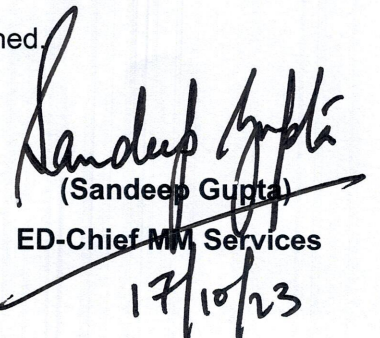 ned.
Sandeep Gupta
(Sandeep Gupta)
ED-Chief MM Services
17/10/23